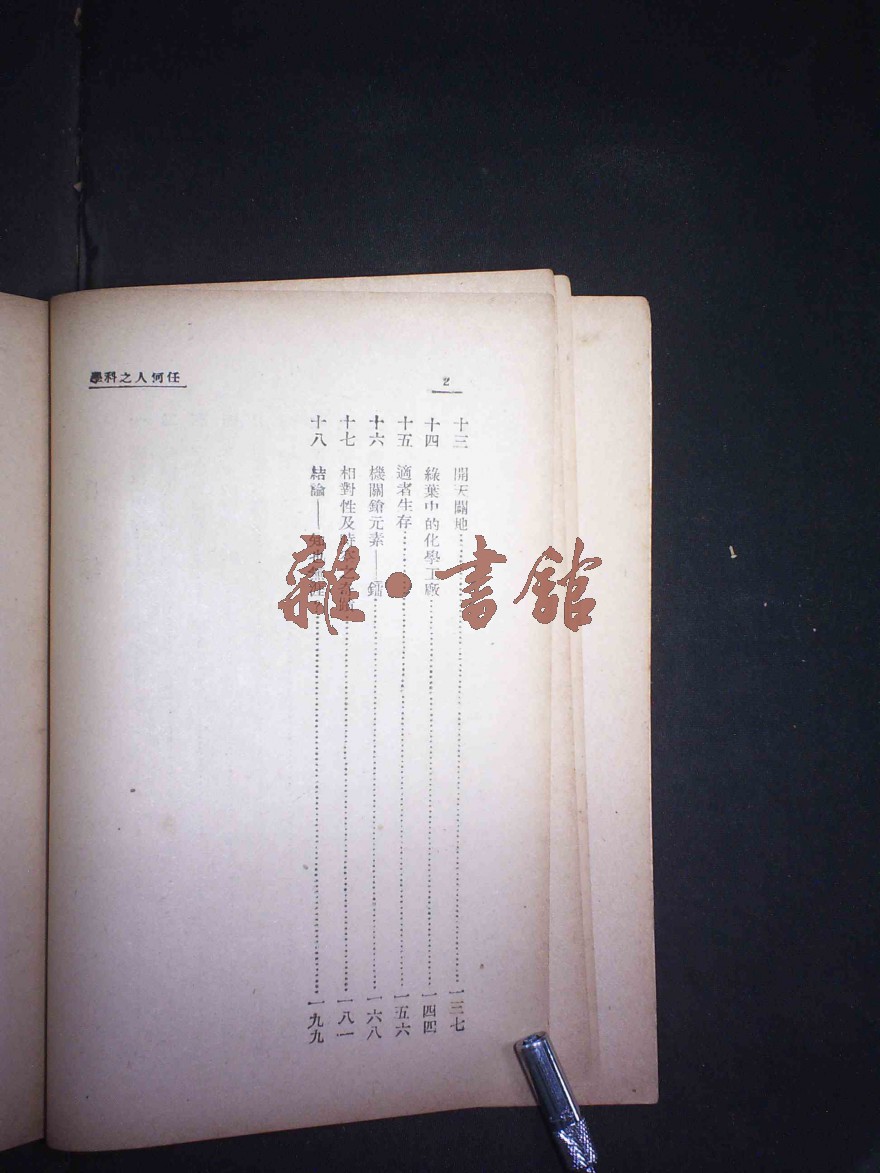 任何人之科學
2
十三 開天闢地 一三七
十四 綠葉中的化學工廠 一四四
十五 適者生存 一五六
十六 機關鎗元素——鐳 一六八
十七 相對性及 一八一
十八 結論—— 一九九
雜·書館